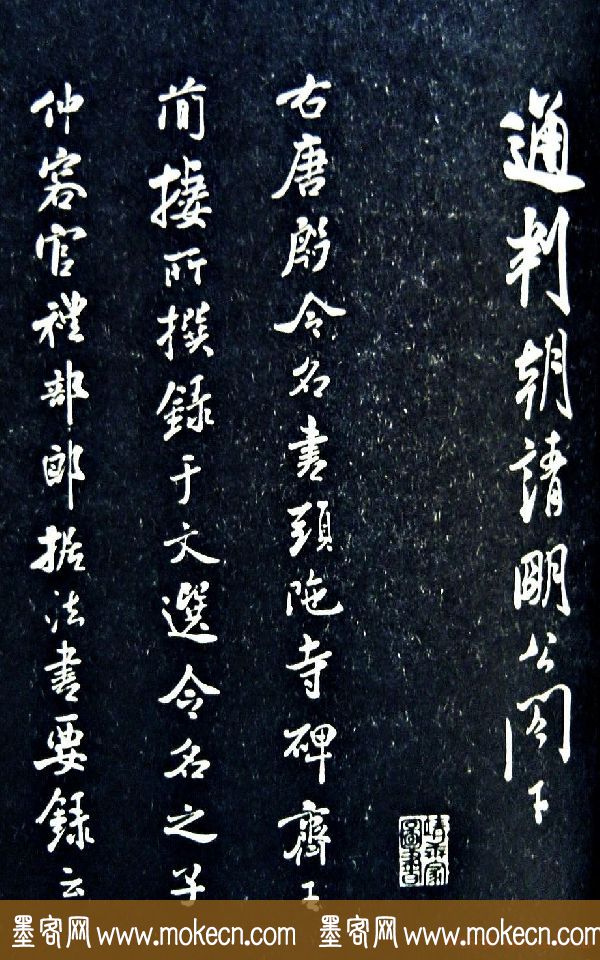 通判朝請明公閤下
右唐殷令名書頭陁寺碑齊王
簡捿所撰録于文選令名之子
仲容官禮部郎据法書要録云
墨客网 www.mokecn.com 墨客网 www.mokecn.com